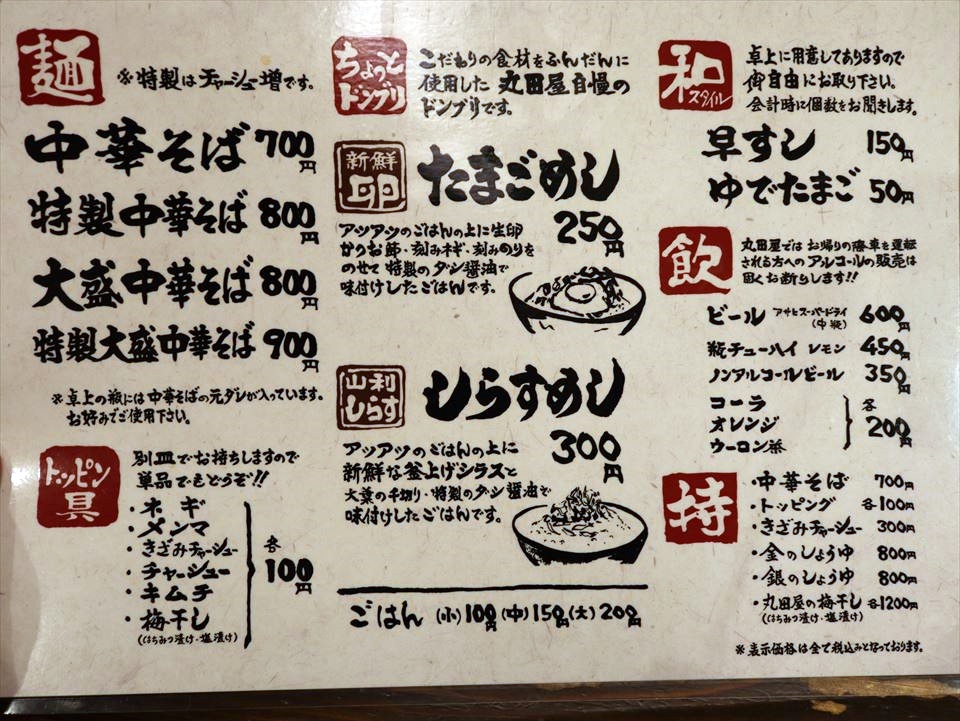 麺
※特製はチャーシュー増です。
中華そば 700円
特製中華そば 800円
大盛中華そば 800円
特製大盛中華そば 900円
※卓上の瓶には中華そばの元ダレが入っています。
お好みでご使用下さい。
トッピン具
別皿でお持ちしますので
単品でもどうぞ!!
・ネギ
・メンマ
・きざみチャーシュー
・チャーシュー
・キムチ
・梅干し
(はちみつ漬け・塩漬け)
各100円
ちょっとドンブリ
こだわりの食材をふんだんに
使用した 丸田屋自慢の
ドンブリです。
新鮮卵
たまごめし
250円
アツアツのごはんの上に生卵
かつお節・刻みネギ・刻みのりを
のせて 特製のダシ醤油で
味付けしたごはんです。
山利しらす
しらすめし
300円
アツアツのごはんの上に
新鮮な釜上げシラスと
大葉の千切り・特製のダシ醤油で
味付けしたごはんです。
ごはん (小)100円(中)150円(大)200円
和スタイル
卓上に用意してありますので
御自由にお取り下さい。
会計時に個数をお聞きします。
早すし 150円
ゆでたまご 50円
飲
丸田屋では お帰りの際車を運転
される方への アルコールの販売は
固くお断りします!!
ビール アサヒスーパードライ(中瓶) 600円
瓶チューハイ レモン 450円
ノンアルコールビール 350円
コーラ
オレンジ
ウーロン茶
各200円
持
・中華そば 700円
・トッピング 各100円
・きざみチャーシュー 300円
・金のしょうゆ 800円
・銀のしょうゆ 800円
・丸田屋の梅干し 各1200円
(はちみつ漬け・塩漬け)
※表示価格は全て税込みとなっております。